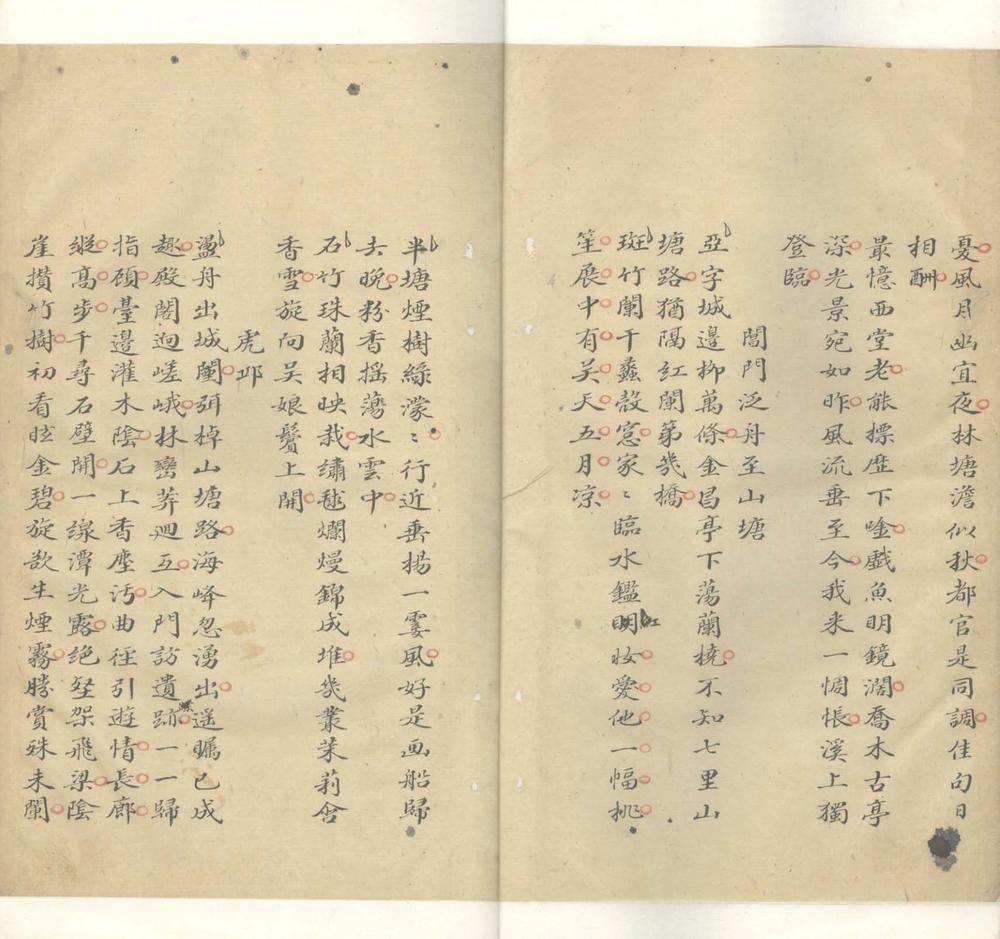 憂風月幽宜夜林塘澹似秋都官是同調佳句日
相酬
最憶西堂老能摽歴下唫戲魚明鏡濶喬木古亭
深光景宛如昨風流垂至今我来一惆悵溪上獨
登臨
閶門泛舟至山塘
亞字城邊柳萬條金昌亭下蕩蘭橈不知七里山
塘路猶隔紅闌第幾橋
斑竹闌干蠡殼窓家〻臨水鑑明妝愛他一幅桃
紅
笙展中有吴天五月凉
半塘煙樹綠濛〻行近垂楊一霎風好是画船歸
去晚粉香搖蕩水雲中
石竹珠蘭相映栽繡毬爛熳錦成堆幾叢茉莉含
香雪旋向吴娘鬢上開
虎邱
盪舟出城闉弭棹山塘路海峰忽湧出遥矚已成
趣殿閣迥嵯峨林巒莽廻互入門訪遺跡一一歸
指顧臺邊灌木陰石上香塵汚曲徑引遊情長廊
縱高步千尋石壁開一線潭光露絶壑架飛梁陰
崖攅竹樹初看眩金碧旋欲生煙霧勝賞殊未闌